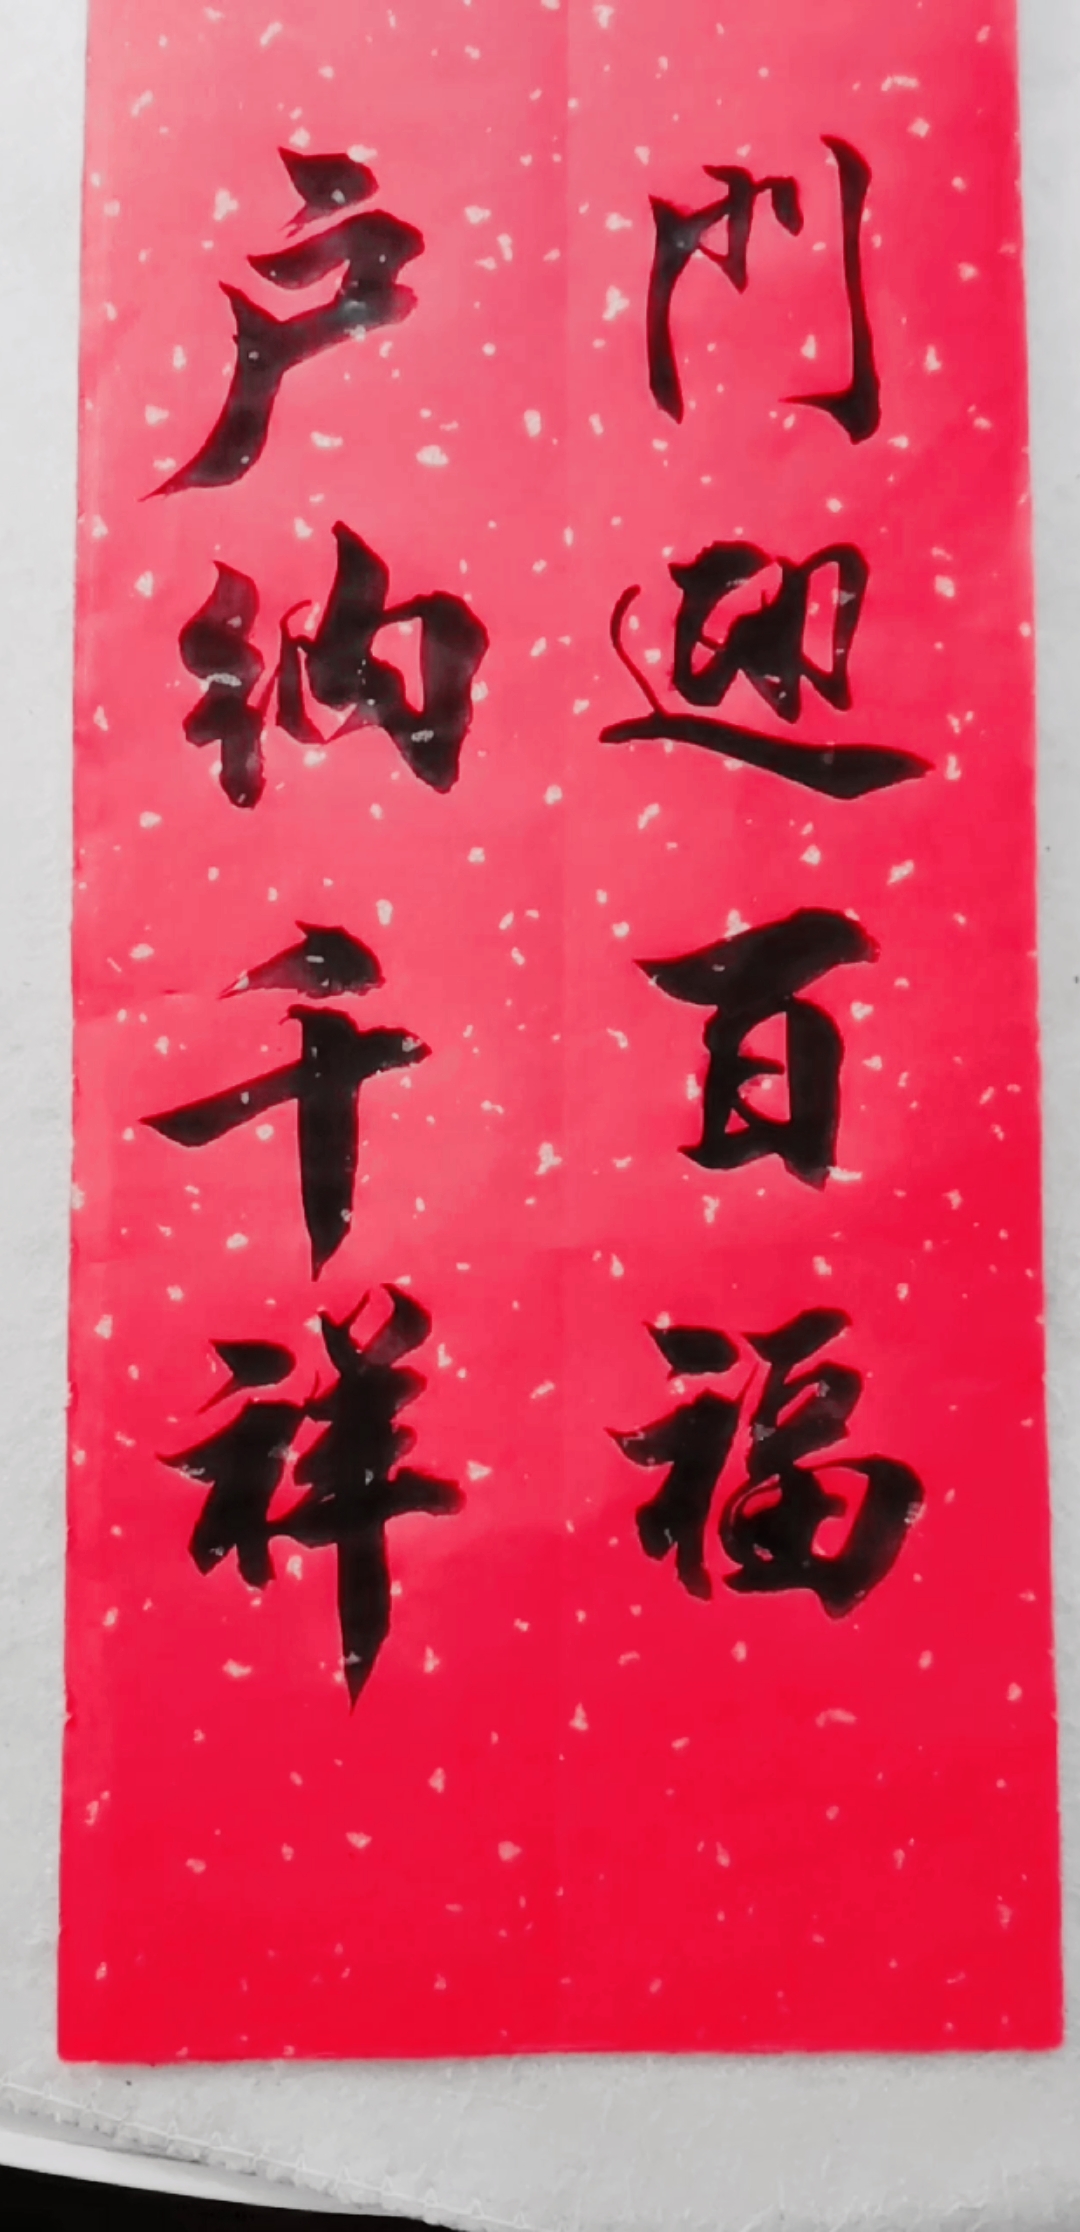 門迎百福
户纳千祥